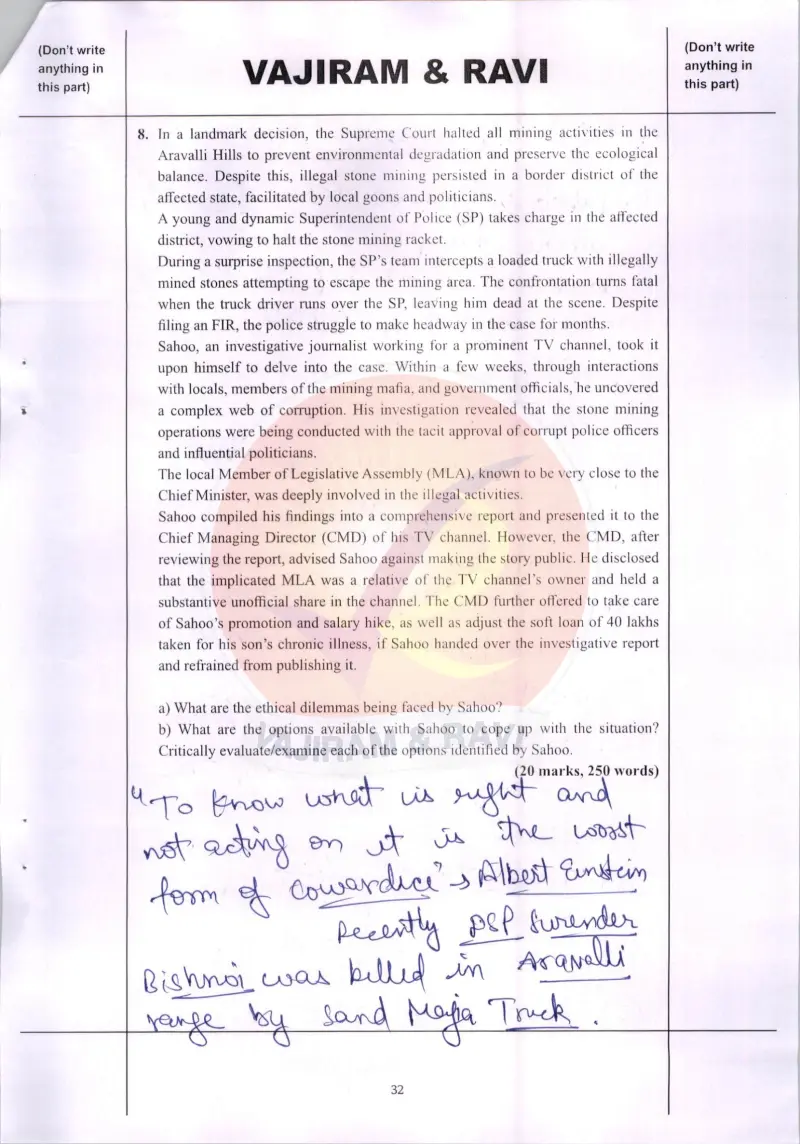 (Don't write
anything in
this part)
VAJIRAM & RAVI
(Don't write
anything in
this part)
8. In a landmark decision, the Supreme Court halted all mining activities in the
Aravalli Hills to prevent environmental degradation and preserve the ecological
balance. Despite this, illegal stone mining persisted in a border district of the
affected state, facilitated by local goons and politicians.
A young and dynamic Superintendent of Police (SP) takes charge in the affected
district, vowing to halt the stone mining racket.
During a surprise inspection, the SP's team intercepts a loaded truck with illegally
mined stones attempting to escape the mining area. The confrontation turns fatal
when the truck driver runs over the SP, leaving him dead at the scene. Despite
filing an FIR, the police struggle to make headway in the case for months.
Sahoo, an investigative journalist working for a prominent TV channel, took it
upon himself to delve into the case. Within a few weeks, through interactions
with locals, members of the mining mafia, and government officials, he uncovered
a complex web of corruption. His investigation revealed that the stone mining
operations were being conducted with the tacit approval of corrupt police officers
and influential politicians.
The local Member of Legislative Assembly (MLA), known to be very close to the
Chief Minister, was deeply involved in the illegal activities.
Sahoo compiled his findings into a comprehensive report and presented it to the
Chief Managing Director (CMD) of his TV channel. However, the CMD, after
reviewing the report, advised Sahoo against making the story public. He disclosed
that the implicated MLA was a relative of the TV channel's owner and held a
substantive unofficial share in the channel. The CMD further offered to take care
of Sahoo's promotion and salary hike, as well as adjust the soft loan of 40 lakhs
taken for his son's chronic illness, if Sahoo handed over the investigative report
and refrained from publishing it.
a) What are the ethical dilemmas being faced by Sahoo?
b) What are the options available with Sahoo to cope up with the situation?
Critically evaluate/examine each of the options identified by Sahoo.
(20 marks, 250 words)
VAJIRAM & RAVI
"To know what is right and
not acting on it is the worst
form of Cowardice" → Albert Einstein
Recently DSP Surender
Bishnoi was killed in Aravalli
range by Sand Mafia Truck.
32